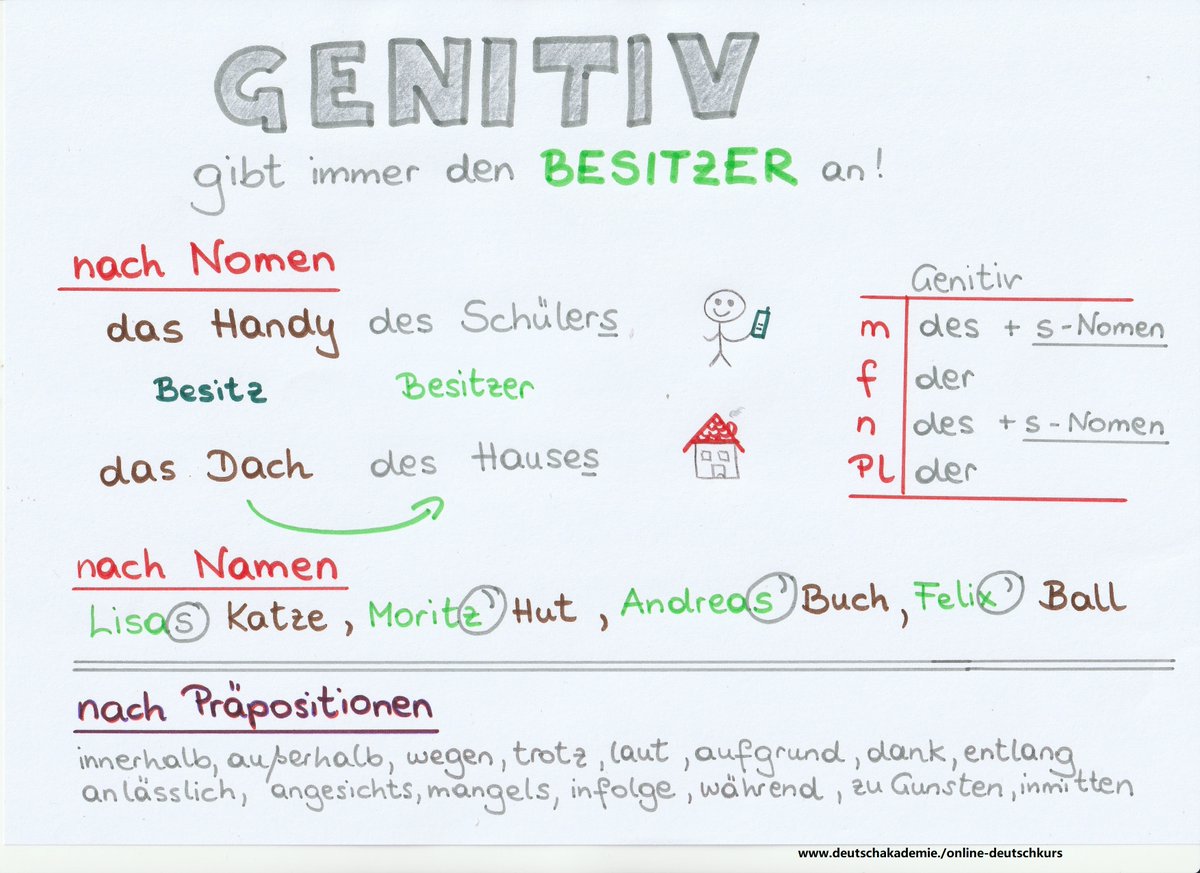 GENITIV
gibt immer den BESITZER an!
nach Nomen
das Handy des Schülers
Besitz Besitzer
das Dach des Hauses
Genitiv
m des + s-Nomen
f der
n des + s-Nomen
Pl der
nach Namen
Lisas Katze, Moritz' Hut, Andreas' Buch, Felix' Ball
nach Präpositionen
innerhalb, außerhalb, wegen, trotz, laut, aufgrund, dank, entlang
anlässlich, angesichts, mangels, infolge, während, zu Gunsten, inmitten
www.deutschakademie./online-deutschkurs